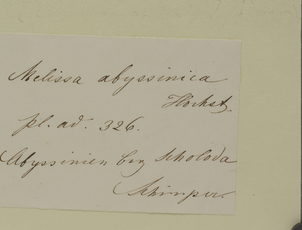 Melissa abyssinica
Hochst.
pl. ad. 326.
Abyssinien Berg Scholoda
Schimper.